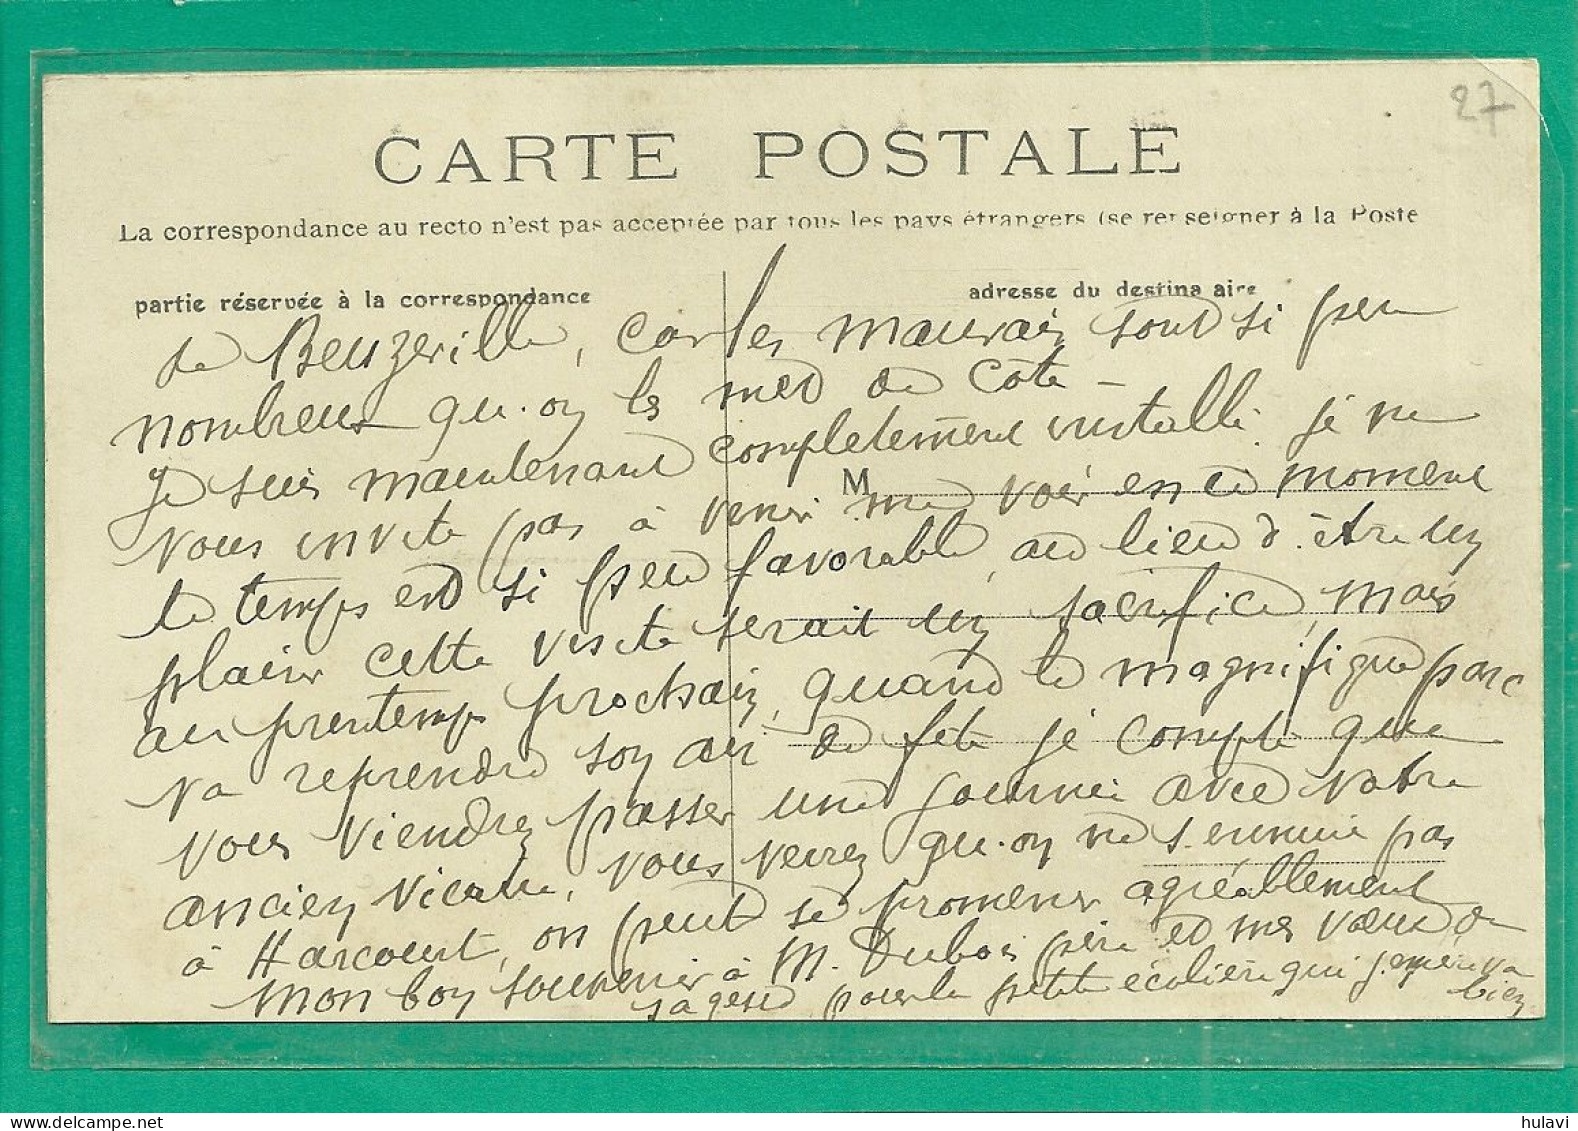 27
CARTE POSTALE
La correspondance au recto n'est pas acceptée par tous les pays étrangers (se renseigner à la Poste
partie réservée à la correspondance
adresse du destinataire
de Beuzeville, car les mauvais sont si peu
nombreux qu'on les met de côté –
Je suis maintenant complètement installé. je ne
M
vous invite pas à venir me voir en ce moment
le temps est si peu favorable, au lieu d'être un
plaisir cette visite serait un sacrifice, mais
au printemps prochain, quand le magnifique parc
va reprendre son air de fête je compte que
vous viendrez passer une journée avec votre
ancien vicaire, vous verrez qu'on ne s'ennuie pas
à Harcourt, on peut se promener agréablement
mon bon souvenir à M. Dubois père et mes vœux de
sagesse pour la petite écolière qui j'espère va
bien
hulavi